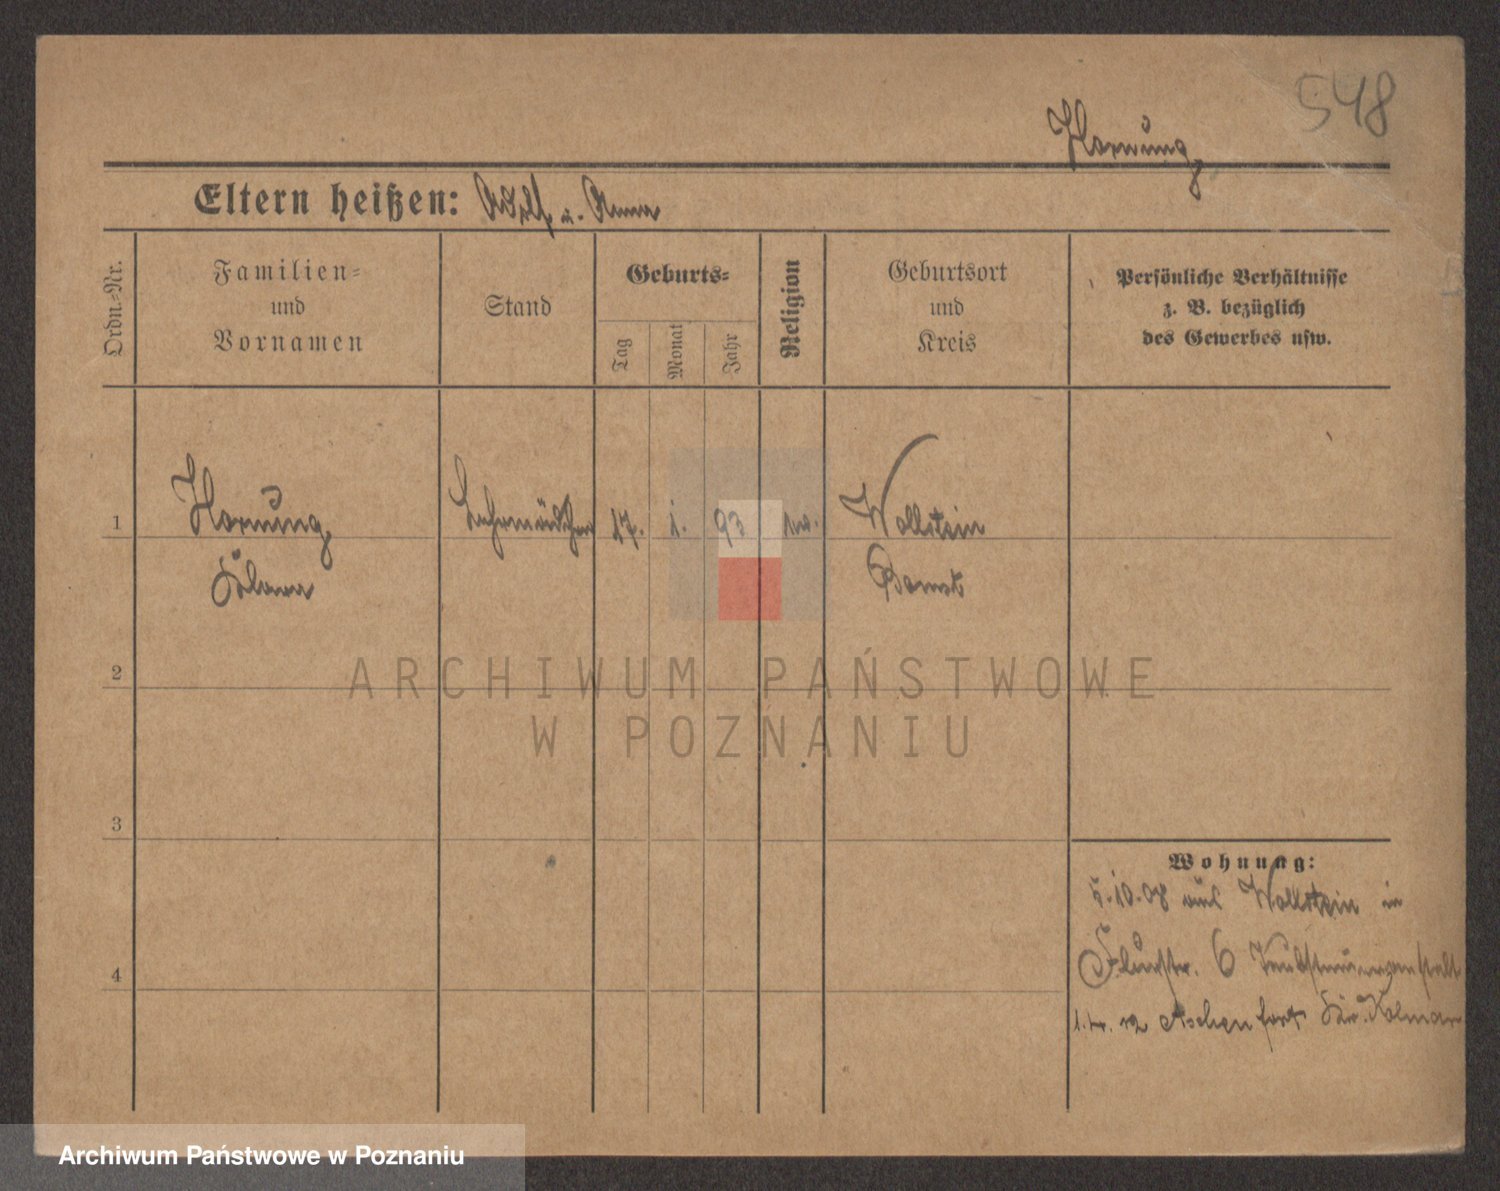 548
Hornung
Eltern heißen: Adolf u. Anna
Ordn.-Nr.
Familien-
und
Vornamen
Stand
Geburts-
Tag
Monat
Jahr
Religion
Geburtsort
und
Kreis
Persönliche Verhältnisse
z. B. bezüglich
des Gewerbes usw.
1
Hornung
Klara
Lehrmädchen
17.
1.
93
ev.
Wollstein
Bomst
2
3
4
Wohnung:
5.10.08 aus Wollstein in
Flurstr. 6 Taubstummenanstalt
Kr. Kolmar
ARCHIWUM PAŃSTWOWE
W POZNANIU
Archiwum Państwowe w Poznaniu